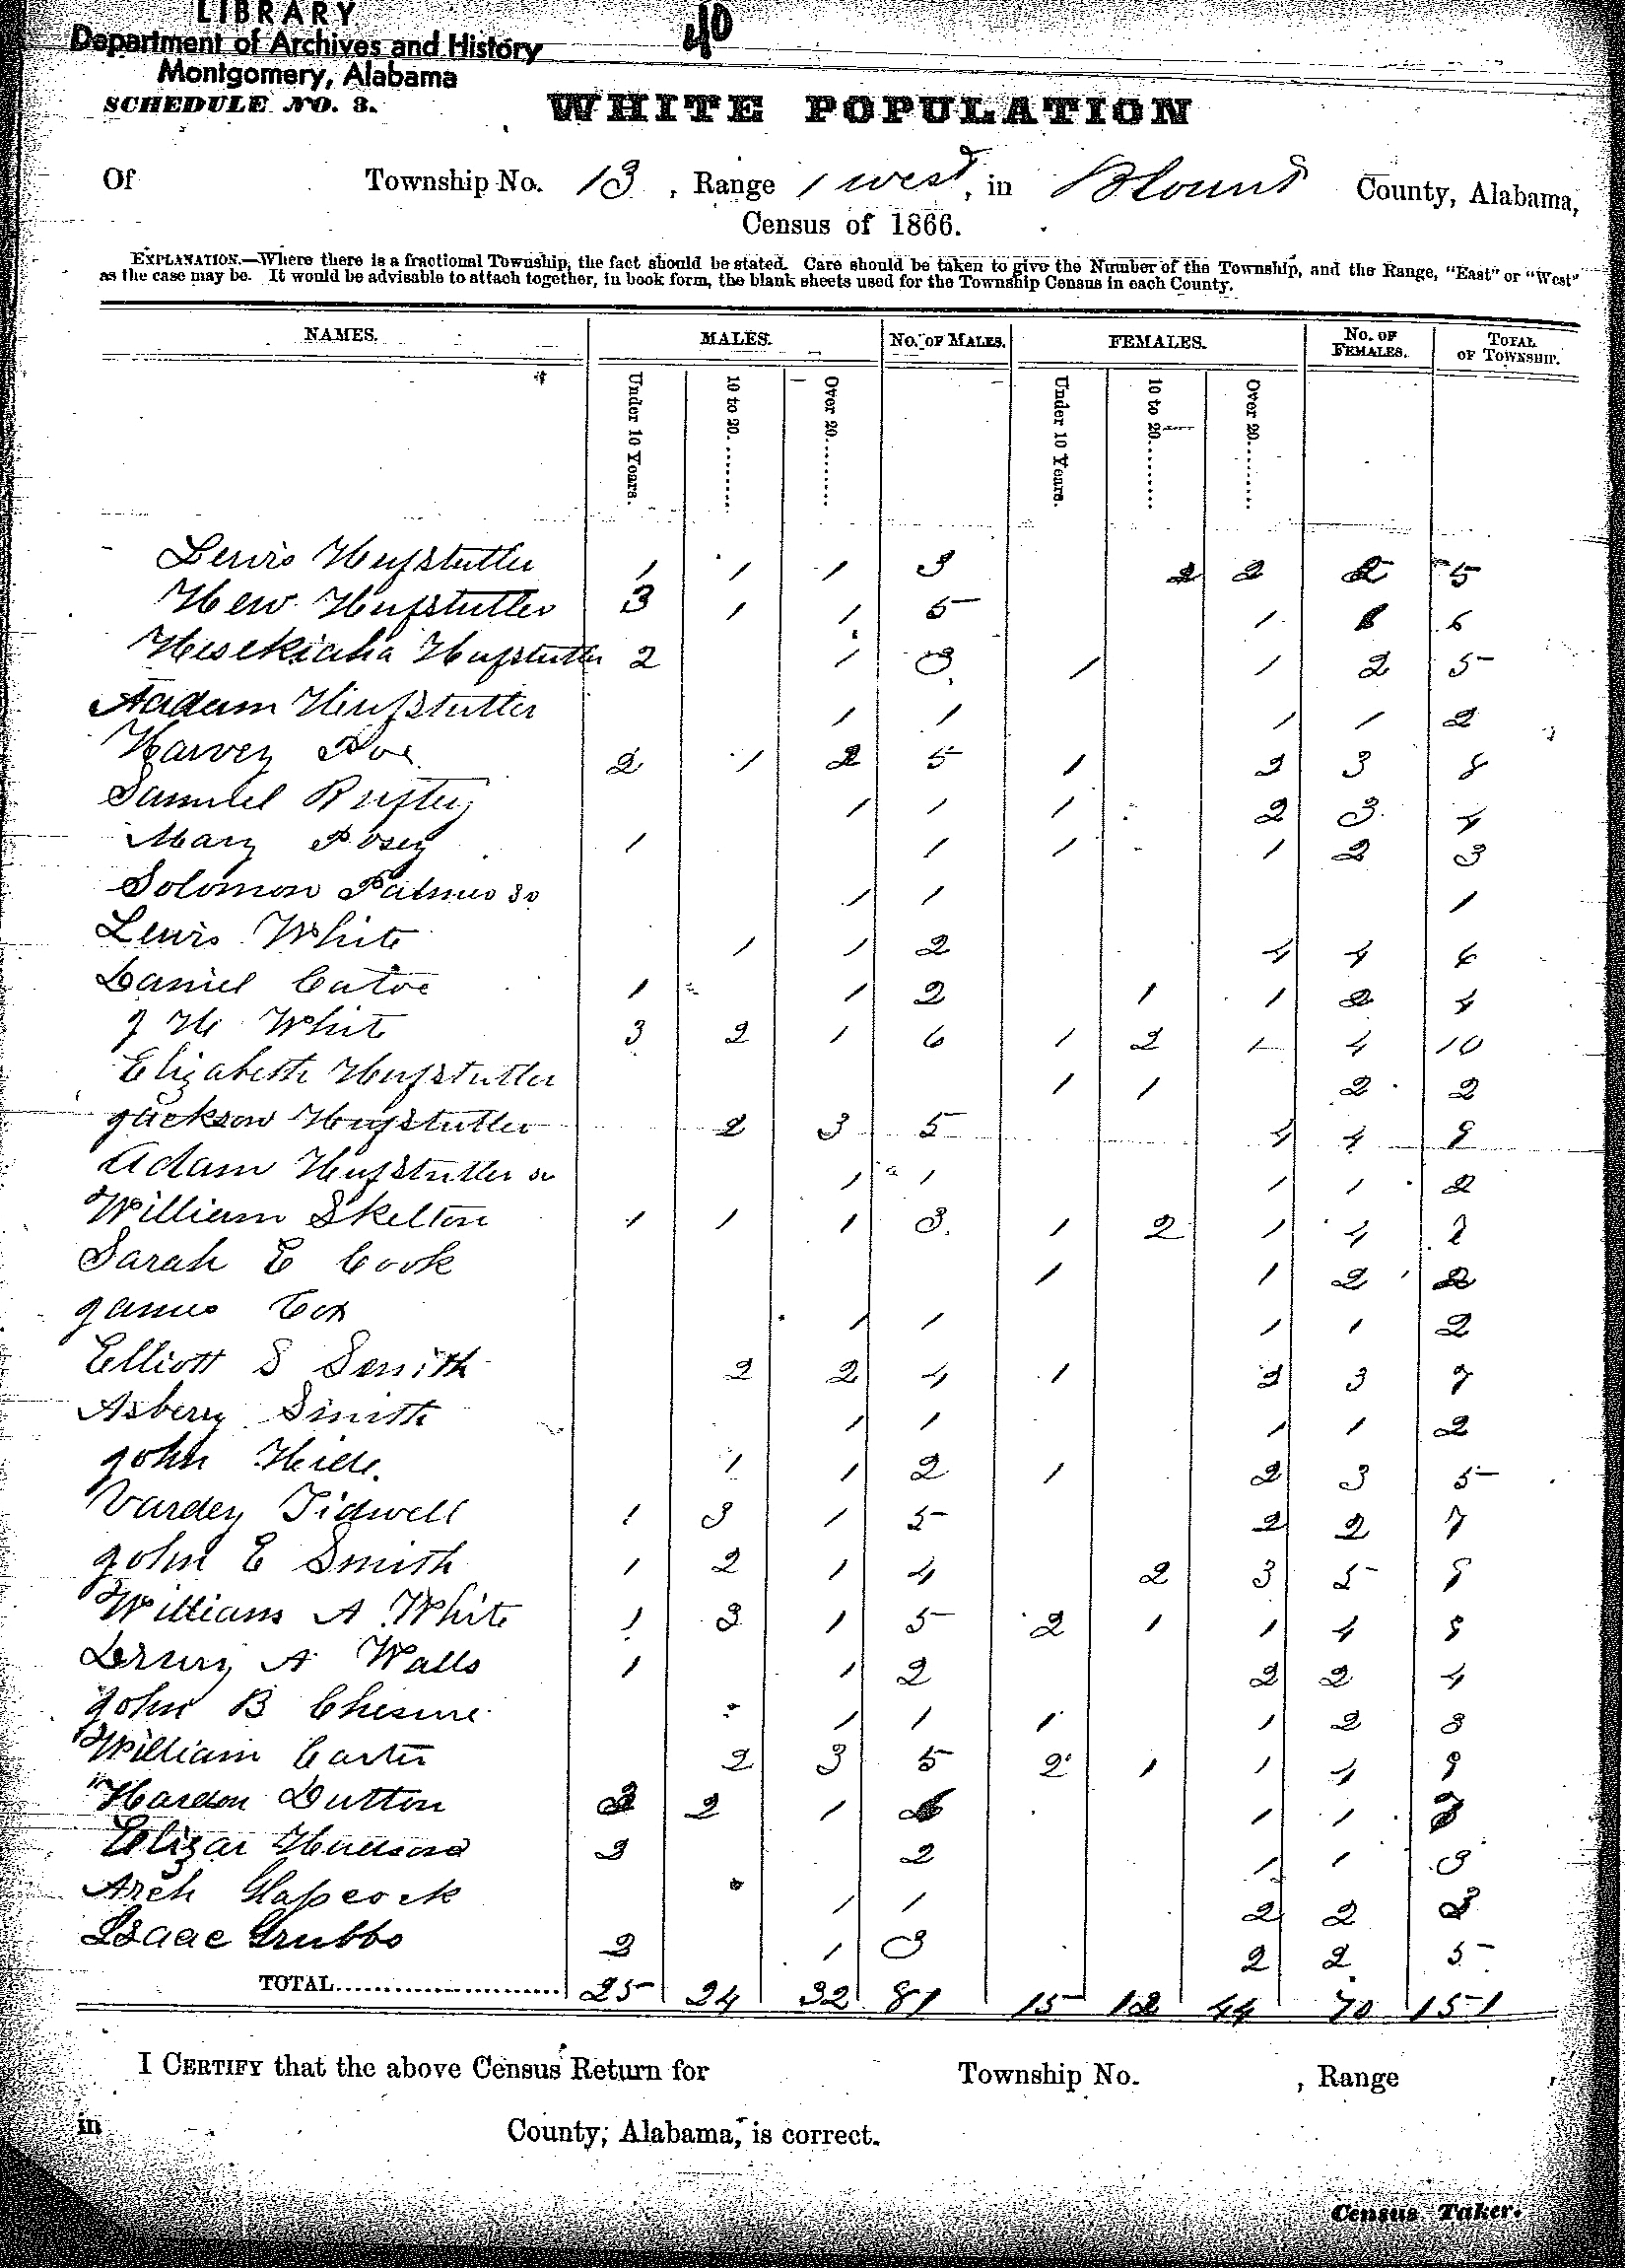 LIBRARY
Department of Archives and History
Montgomery, Alabama
40
SCHEDULE NO. 3.
WHITE POPULATION
Of Township No. 13, Range 1 west, in Blount County, Alabama,
Census of 1866.
EXPLANATION.—Where there is a fractional Township, the fact should be stated. Care should be taken to give the Number of the Township, and the Range, "East" or "West"
as the case may be. It would be advisable to attach together, in book form, the blank sheets used for the Township Census in each County.
NAMES. MALES. No. of Males. FEMALES. No. of Females. Total of Township.
Under 10 Years. 10 to 20. Over 20. Under 10 Years. 10 to 20. Over 20.
Lewis Hufstutler 1 1 1 3 2 2 5
Hew Hufstutler 3 1 1 5 1 6
Hesekiaha Hufstutler 2 1 3 1 1 2 5
Aadam Hufstutler 1 1 1 1 2
Harvey 2 1 2 5 1 2 3 8
Samuel 1 1 1 2 3 4
Mary Posey 1 1 1 1 2 3
Solomon Palmer 1 1 1
Lewis White 1 1 2 4 4 6
Daniel Catoe 1 1 2 1 1 2 4
J H White 3 2 1 6 1 2 1 4 10
Elizabeth Hufstutler 1 1 2 2
Jackson Hufstutler 2 3 5 4 4 9
Adam Hufstutler sr 1 1 1 1 2
William Skelton 1 1 1 3 1 2 1 4 7
Sarah E Cook 1 1 2 2
James Cox 1 1 1 1 2
Elliott S Smith 2 2 4 1 2 3 7
Asberry Smith 1 1 1 1 2
John 1 1 2 1 2 3 5
Vardey Tidwell 1 3 1 5 2 2 7
John E Smith 1 2 1 4 2 3 5 9
William A White 1 3 1 5 2 1 1 4 9
Drury A Walls 1 1 2 2 2 4
John B 1 1 1 1 2 3
William Carter 2 3 5 2 1 1 4 9
Dutton 2 1 1 1
Elizar 2 2 1 1 3
Arch Glasscock 1 1 2 2 3
Isaac Grubbs 2 1 3 2 2 5
TOTAL 25 24 32 81 15 12 44 70 151
I CERTIFY that the above Census Return for Township No. , Range ,
in County, Alabama, is correct.
Census Taker.